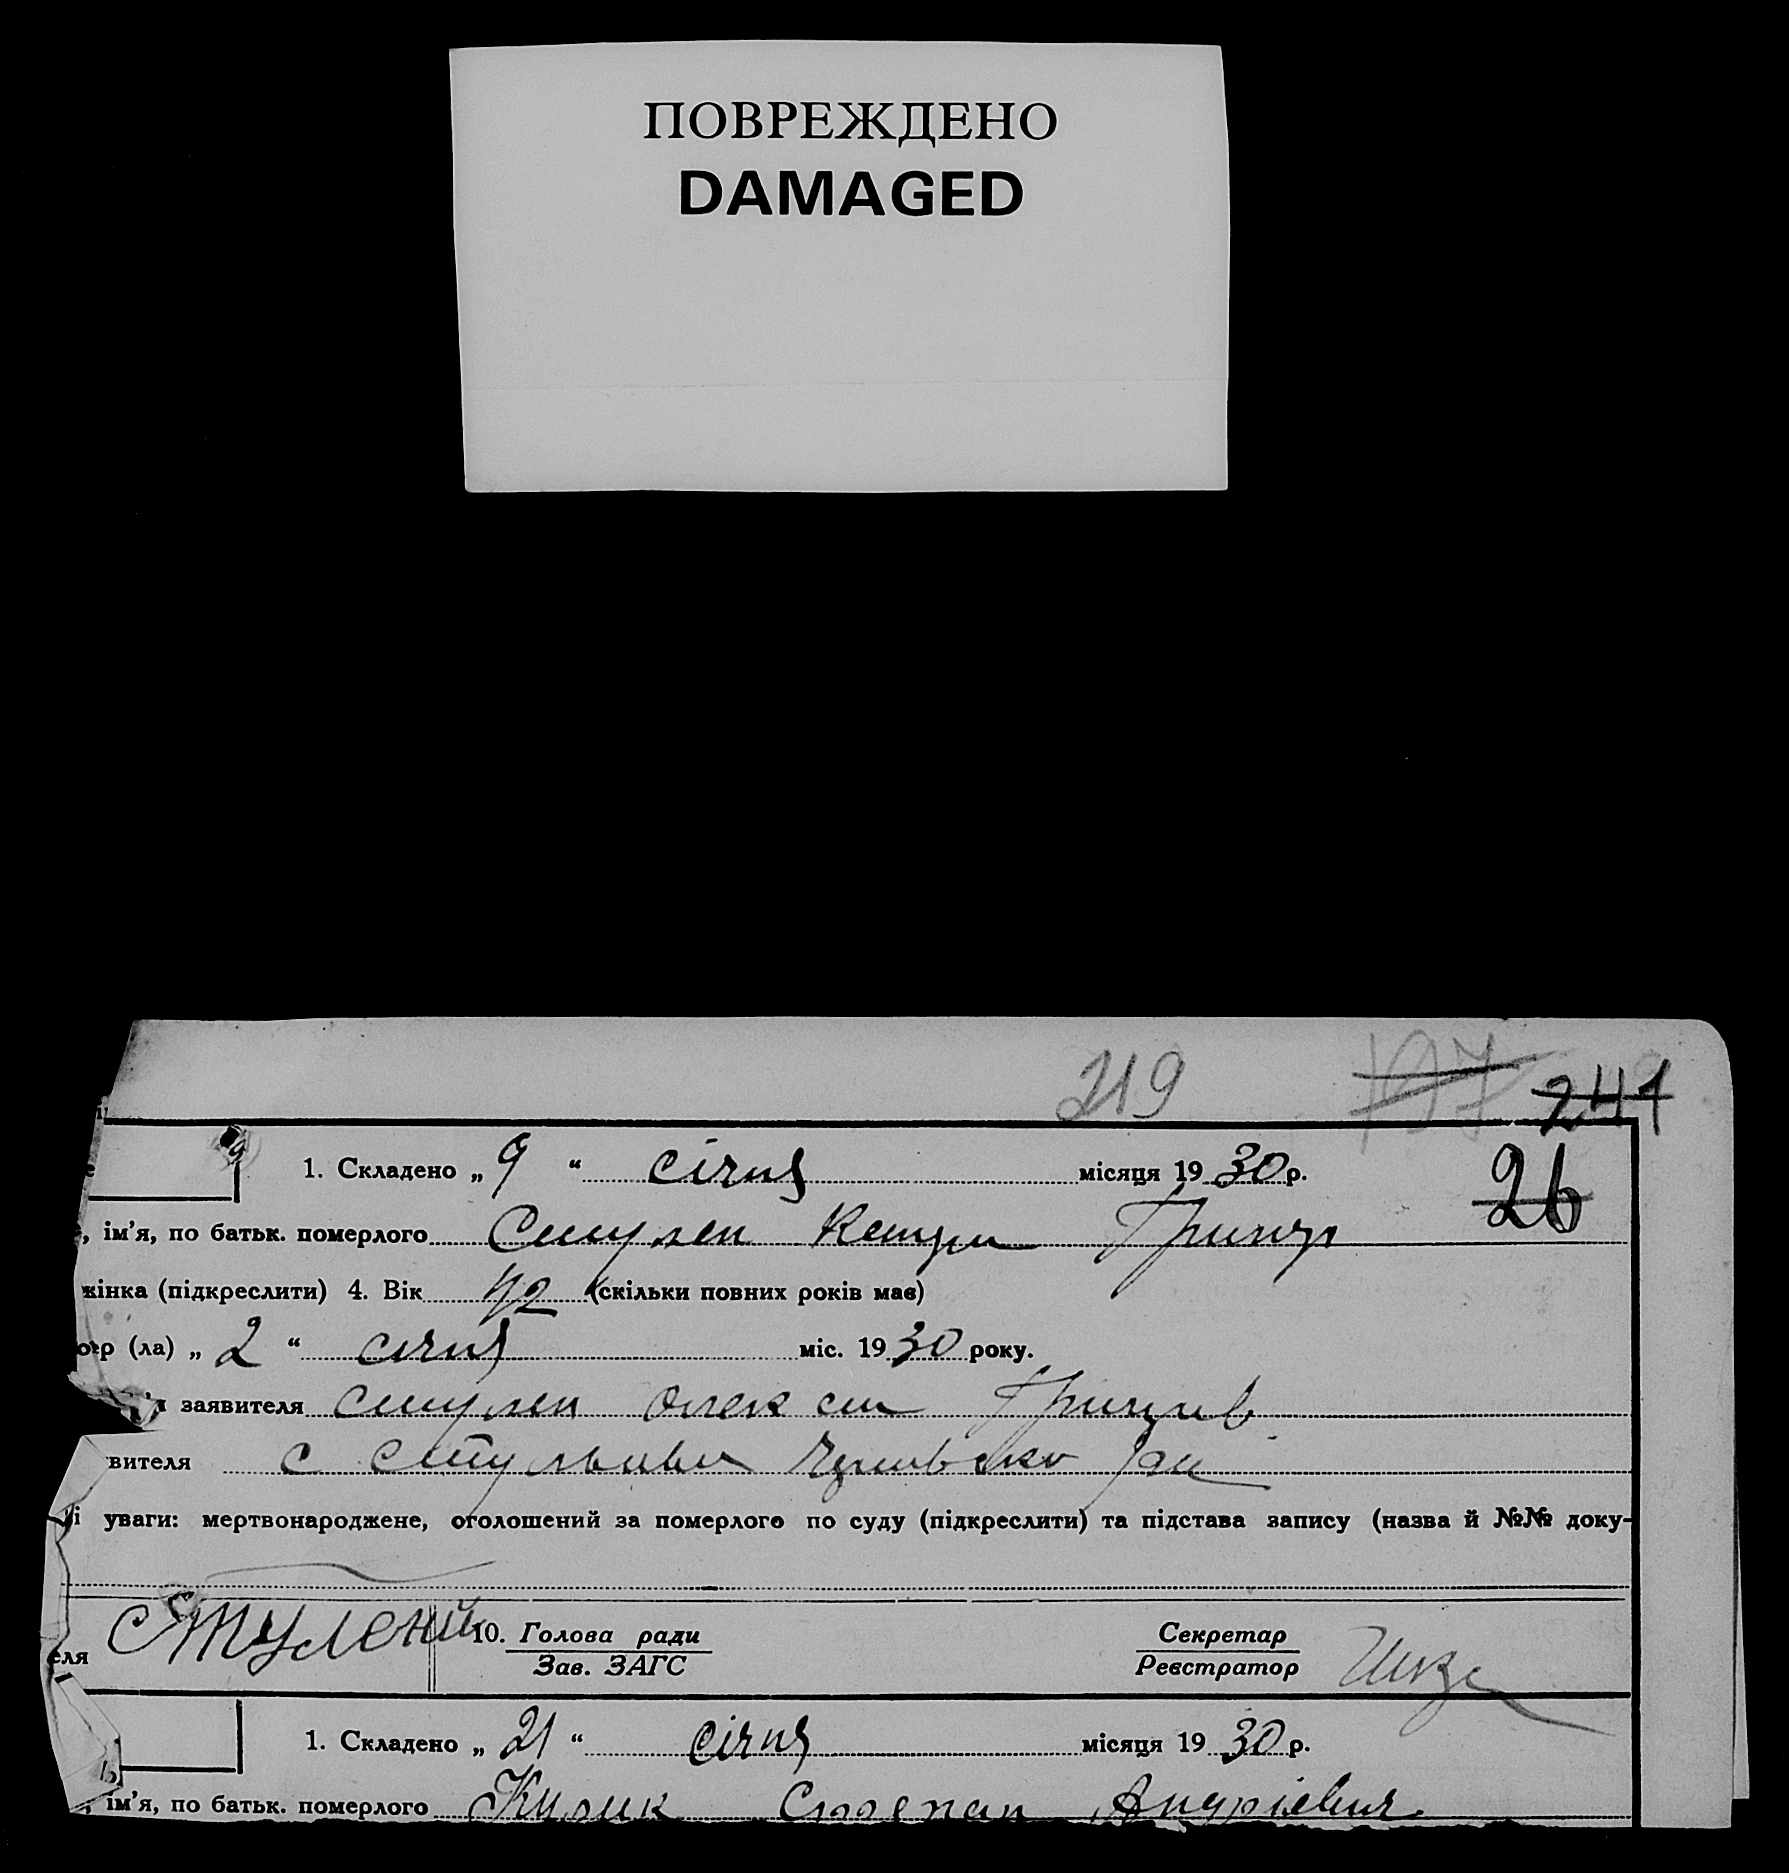 ПОВРЕЖДЕНО
DAMAGED
219 197 241
26
1. Складено „ 9 “ січня місяця 19 30 р.
, ім’я, по батьк. померлого Стулен
жінка (підкреслити) 4. Вік (скільки повних років має)
мер (ла) „ 2 “ січня міс. 19 30 року.
заявителя Стулен Олексій
вителя с Стульнівка рай
і уваги: мертвонароджене, оголошений за померлого по суду (підкреслити) та підстава запису (назва й №№ доку-
еля Стулений 10. Голова ради Секретар
Зав. ЗАГС Реєстратор
1. Складено „ 21 “ січня місяця 19 30 р.
, ім’я, по батьк. померлого Кулик Степан Андрієвич